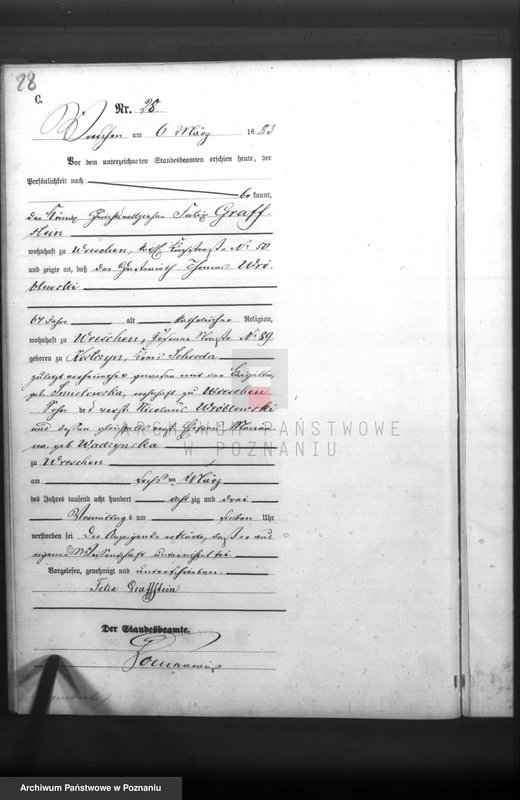 28
C.
Nr. 28.
Wreschen am 6 März 1883
Vor dem unterzeichneten Standesbeamten erschien heute, der
Persönlichkeit nach
be kannt,
der Königl. Gerichtsvollzieher Felix Graff-
stein
wohnhaft zu Wreschen, Kirchstraße No 50
und zeigte an, daß der Gastwirth Thomas Wró-
blewski
64 Jahre alt, katholischer Religion,
wohnhaft zu Wreschen, Posener Straße No 89.
geboren zu Kreis Schroda
zuletzt verheirathet gewesen mit der Brigitta,
geb. Smolowska, wohnhaft zu Wreschen
Sohn des verst. Nicolaus Wroblewski
und dessen gleichfalls verst. Ehefrau Marian-
na geb. Wadzynska
zu Wreschen
am sechsten März
des Jahres tausend acht hundert acht zig und drei
Vormittags um sieben Uhr
verstorben sei. Der Anzeigende erklärte, daß er aus
eigener Wissenschaft unterrichtet sei
Vorgelesen, genehmigt und unterschrieben.
Felix Graffstein
Der Standesbeamte.
ARCHIWUM PAŃSTWOWE
W POZNANIU
Archiwum Państwowe w Poznaniu